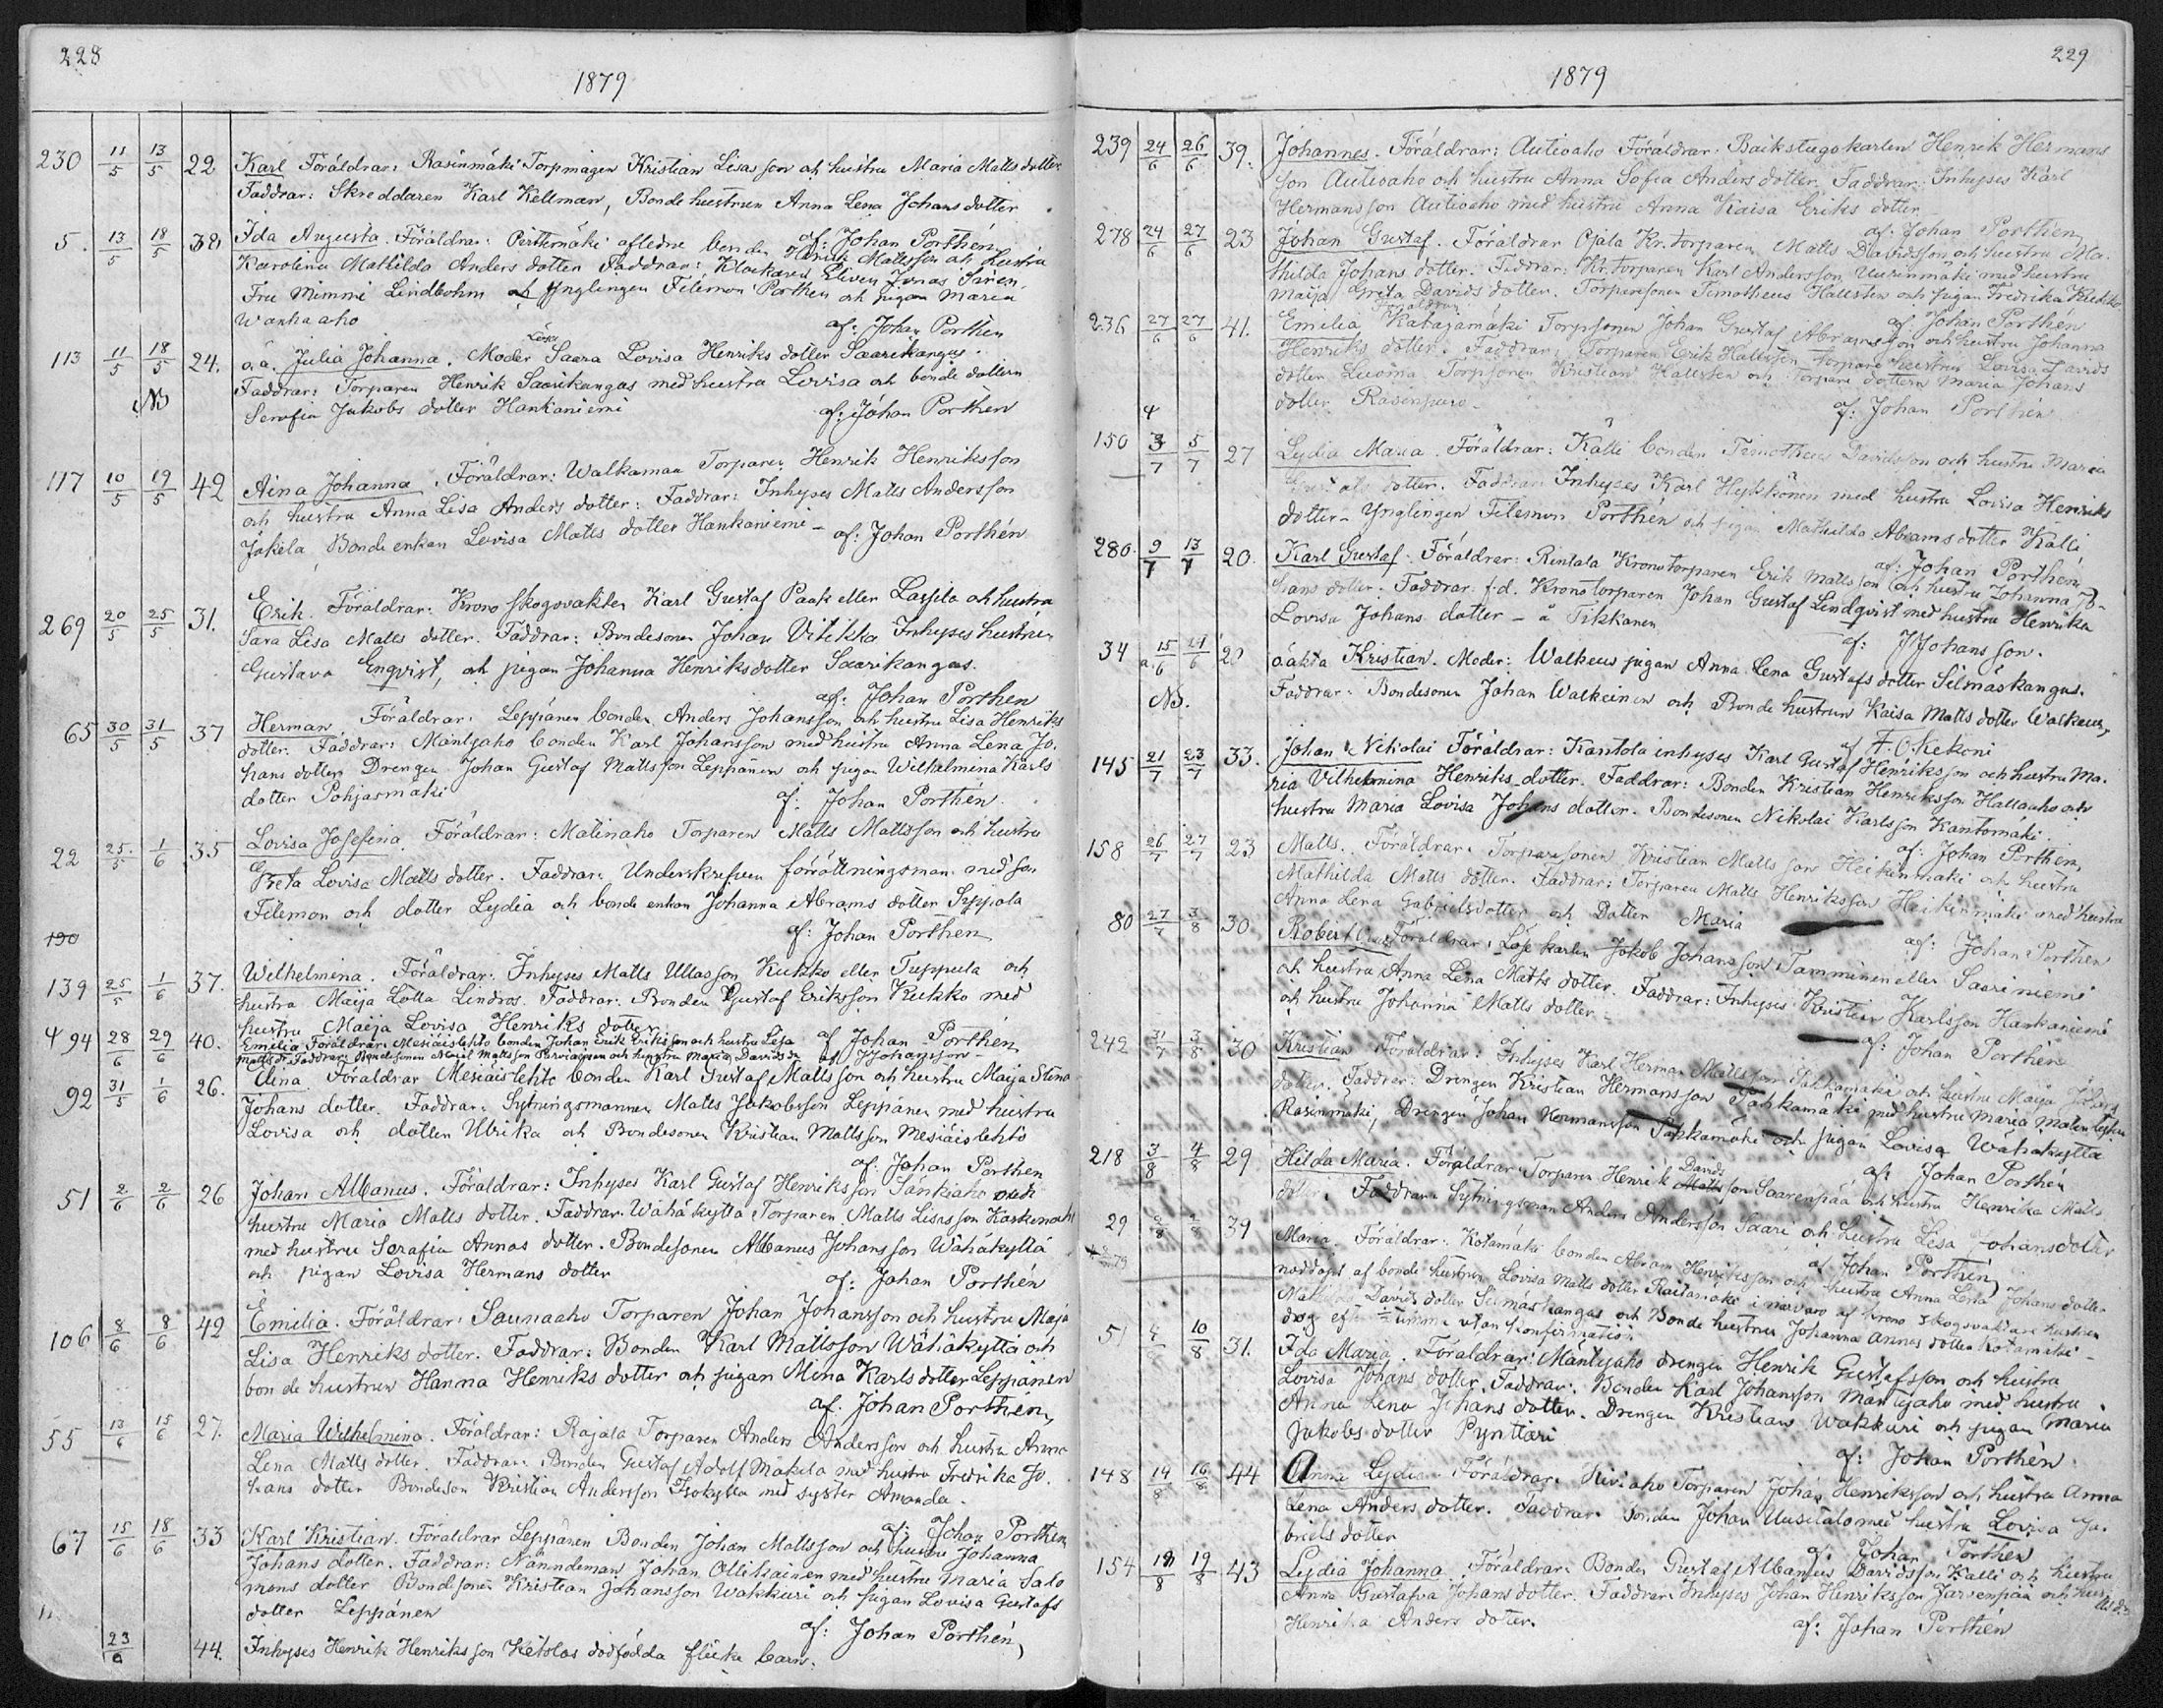 228
1879
230 11/5 13/5 22 Karl Föräldrar: Rasinmäki Torpmagen Kristian Lisas son och hustru Maria Matts dotter
Faddrar: Skreddaren Karl Kellman, Bonde hustrun Anna Lena Johans dotter
af: Johan Porthén
5. 13/5 18/5 38 Ida Augusta. Föräldrar: Perttumäki afledne bonden Henrik Mattsson och hustru
Karolina Mathilda Anders dotter Faddrar: Klockared Eliven Jonas Siren,
Fru Mimmi Lindbohm och Ynglingen Filemon Porthen och pigan Maria
Wanhaaho af: Johan Porthén
113 11/5 18/5 24. o.ä. Julia Johanna. Moder Lösa Saara Lovisa Henriks dotter Saarikangas.
Faddrar: Torparen Henrik Saarikangas med hustru Lovisa och bonde dottern
Nb Serafia Jakobs dotter Hankaniemi af: Johan Porthén
117 10/5 19/5 42 Aina Johanna. Föräldrar: Walkamaa Torparen Henrik Henriksson
och hustru Anna Lisa Anders dotter: Faddrar: Inhyses Matts Andersson
Jakela, Bonde enkan Lovisa Matts dotter Hankaniemi - af: Johan Porthén
269 20/5 25/5 31. Erik. Föräldrar: Krono skogsvakten Karl Gustaf Paak eller Lassila och hustru
Sara Lisa Matts dotter. Faddrar: Bondesonen Johan Vitikka Inhyses hustrun
Gustava Enqvist, och pigan Johanna Henriksdotter Saarikangas.
af: Johan Porthén
65 30/5 31/5 37 Herman Föräldrar: Leppänen bonden Anders Johansson och hustru Lisa Henriks
dotter. Faddrar: Mäntyaho bonden Karl Johansson med hustru Anna Lena Jo-
hans dotter Drengen Johan Gustaf Mattsson Leppänen och pigan Wilhelmina Karls
dotter Pohjasmäki af: Johan Porthén.
22 25/5 1/6 35 Lovisa Josefina Föräldrar: Matinaho Torparen Matts Mattsson och hustru
Greta Lovisa Matts dotter. Faddrar: Underskrefven förrättningsman med son
Filemon och dotter Lydia och bonde enkan Johanna Abrams dotter Seppala
190 af: Johan Porthén
139 25/5 1/6 37. Wilhelmina. Föräldrar: Inhyses Matts Ullasson Kukko eller Tuppula och
hustru Maija Lotta Lindros. Faddrar: Bonden Gustaf Eriksson Kukko med
hustru Maija Lovisa Henriks dotter af Johan Porthén
94 28/6 29/6 40. Emilia Föräldrar: Mesiäislehto bonden Johan Erik Eriksson och hustru Lisa
Matts dr. Faddrar: Bondesonen Mattsson och hustru Maria Davids dr af JJohansson
92 31/5 1/6 26. Aina. Föräldrar Mesiäislehto bonden Karl Gustaf Mattsson och hustru Maija Stina
Johans dotter. Faddrar: Sytningsmannen Matts Jakobsson Leppänen med hustru
Lovisa och dotter Ulrika och Bondesonen Kristian Mattsson Mesiäislehto
af: Johan Porthén
51 2/6 2/6 26 Johan Albanus. Föräldrar: Inhyses Karl Gustaf Henriksson Särkiaho och
hustru Maria Matts dotter. Faddrar: Wähäkyttä Torparen Matts Lisasson
med hustru Serafia Annas dotter. Bondesonen Albanus Johansson Wähäkyttä
och pigan Lovisa Hermans dotter af: Johan Porthén
106 8/6 8/6 42 Emilia. Föräldrar: Saunaaho Torparen Johan Johansson och hustru Maja
Lisa Henriks dotter. Faddrar: Bonden Karl Mattsson Wähäkyttä och
bonde hustrun Hanna Henriks dotter och pigan Mina Karls dotter Leppänen
af. Johan Porthén
55 13/6 15/6 27. Maria Wilhelmina. Föräldrar: Rajala Torparen Anders Andersson och hustru Anna
Lena Matts dotter. Faddrar: Bonden Gustaf Adolf Mäkela med hustru Fredrika Jo-
hans dotter Bondeson Kristian Andersson Isokyttä med syster Amanda.
af: Johan Porthén
67 15/6 18/6 33 Karl Kristian. Föräldrar Leppänen Bonden Johan Mattsson och hustru Johanna
Johans dotter. Faddrar: Nämndeman Johan Ollikainen med hustru Maria Salo
mons dotter Bondesonen Kristian Johansson Wakkuri och pigan Lovisa Gustafs
dotter Leppänen af: Johan Porthén
23/6 44. Inhyses Henrik Henriksson Ketolas dödfödda flicke barn.
229
1879
239 24/6 26/6 39. Johannes. Föräldrar: Autioaho Föräldrar: Backstugokarlen Henrik Hermans
son Autioaho och hustru Anna Sofia Anders dotter. Faddrar: Inhyses Karl
Hermansson Autioaho med hustru Anna Kaisa Eriks dotter
af: Johan Porthén
278 24/6 27/6 23 Johan Gustaf. Föräldrar Ojala Kr. torparen Matts Davidsson och hustru Ma-
thilda Johans dotter. Faddrar: Kr. torparen Karl Andersson Uusinmäki med hustru
Maija Greta Davids dotter. Torparesonen Timotheus Hallsten och pigan Fredrika Kukko
af: Johan Porthén
236 27/6 27/6 41. Emilia Föräldrar Katajamäki Torpsonen Johan Gustaf Abramsson och hustru Johanna
Henriks dotter. Faddrar: Torparen Erik Hallsten Torpare hustrun Lovisa Davids
dotter Luoma Torpsonen Kristian Hallsten och Torpare dottern Maria Johans
dotter Räsinpuro - af: Johan Porthén
150 4 3/7 5/7 27 Lydia Maria. Föräldrar: Källi bonden Timotheus Davidsson och hustru Maria
dotter. Faddrar: Inhyses Karl Hykkönen med hustru Lovisa Henriks
dotter - Ynglingen Filemon Porthén och pigan Mathilda Abrams dotter Källi
af: Johan Porthén
280. 9/7 13/7 20. Karl Gustaf. Föräldrar: Rintala Kronotorparen Erik Mattsson och hustru Johanna Jo-
hans dotter. Faddrar: f.d. Kronotorparen Johan Gustaf Lindqvist med hustru Henrika
Lovisa Johans dotter - å Tikkanen af: JJohansson.
34 15/6 21/6 20 oäkta Kristian. Moder: Walkeus pigan Anna Lena Gustafs dotter Silmäskangas.
Nb. Faddrar: Bondesonen Johan Walkeinen och Bonde hustrun Kaisa Matts dotter Walkeus
af F.O. Kekoni
145 21/7 23/7 33. Johan Nikolai Föräldrar: Kantola inhyses Karl Gustaf Henriksson och hustru Ma-
ria Vilhelmina Henriks dotter. Faddrar: Bonden Kristian Henriksson Hallaaho och
hustru Maria Lovisa Johans dotter. Bondesonen Nikolai Karlsson Kantomäki.
af: Johan Porthén
158 26/7 27/7 23 Matts. Föräldrar: Torparesonen Kristian Mattsson Heikinmäki och hustru
Mathilda Matts dotter. Faddrar: Torparen Matts Henriksson Heikinmäki med hustru
Anna Lena Gabrielsdotter och Dotter Maria af: Johan Porthén
80 27/7 3/8 30 Robert Föräldrar: Löse karlen Jakob Johansson Tamminen eller Saariniemi
och hustru Anna Lena Matts dotter. Faddrar: Inhyses Kristian Karlsson Hankaniemi
och hustru Johanna Matts dotter - af: Johan Porthén
242 31/7 3/8 30 Kristian Föräldrar: Inhyses Karl Herman Mattsson Pahkamäki och hustru Maija Johans
dotter. Faddrar: Drengen Kristian Hermansson Pahkamäki med hustru Maria
Rasinmäki, Drengen Johan Hermansson Pahkamäki och pigan Lovisa Wähäkyttä
af: Johan Porthén
218 3/8 4/8 29 Hilda Maria. Föräldrar Torparen Henrik Davids Mattsson Saarenpää och hustru Henrika Matts
dotter. Faddrar: Sytningsman Anders Andersson Saari och hustru Lisa Johansdotter
af Johan Porthén
29 39 Maria. Föräldrar: Kotamäki bonden Abram Henriksson och hustru Anna Lena Johans dotter
nöddöpt af bonde hustrun Lovisa Matts dotter Raitamäki i närvaro af krono skogsvaktare hustrun
Davids dotter Silmäskangas och Bonde hustrun Johanna Annas dotter Kotamäki -
dog efter ½ timme utan konfirmation
51 10/8 31. Ida Maria. Föräldrar: Mäntyaho drengen Henrik Gustafsson och hustru
Lovisa Johans dotter. Faddrar: Bonden Karl Johansson Mäntyaho med hustru
Anna Lena Johans dotter. Drengen Kristian Wakkuri och pigan Maria
Jakobs dotter Pynttäri af: Johan Porthén
148 14/8 16/8 44 Anna Lydia. Föräldrar: Kiviaho Torparen Johan Henriksson och hustru Anna
Lena Anders dotter. Faddrar: bonden Johan Uusitalo med hustru Lovisa Ga-
briels dotter af: Johan Porthén
154 18/8 19/8 43 Lydia Johanna. Föräldrar: Bonden Gustaf Albanus Davidsson Källi och hustru
Anna Gustafva Johans dotter. Faddrar: Inhyses Johan Henriksson Jarvenpää och hustru
Henrika Anders dotter. af: Johan Porthén